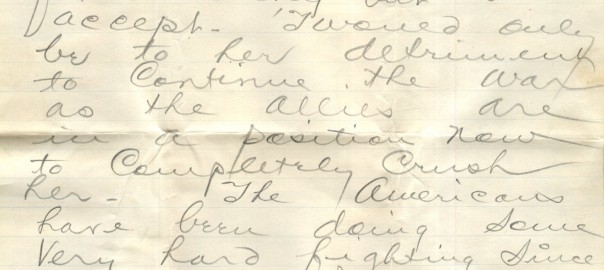 accept. 'Twould only
be to her detriment
to Continue the War
as the Allies are
in a position now
to Completely Crush
her. The Americans
have been doing Some
Very hard fighting Since